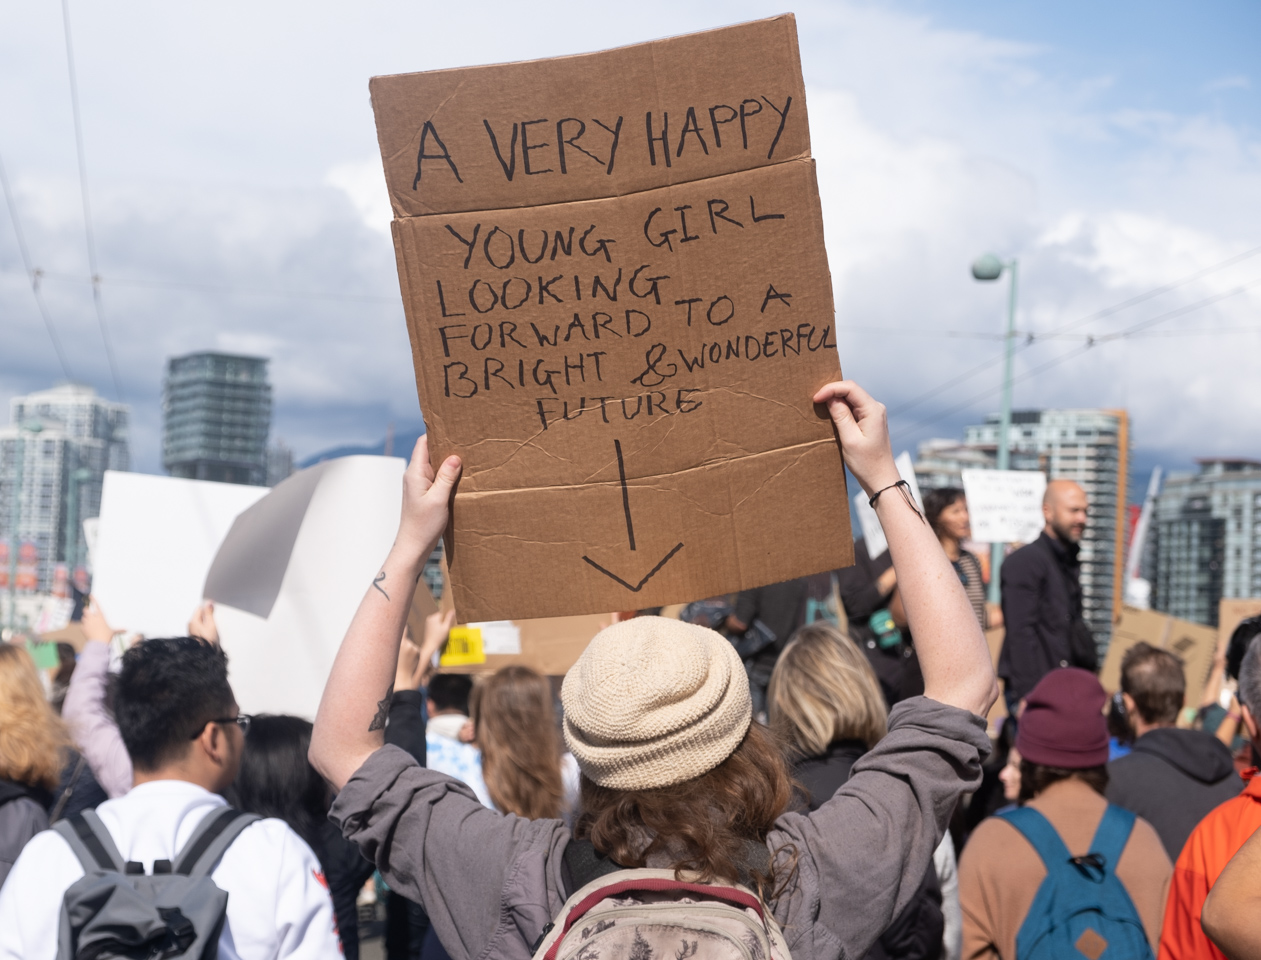 A VERY HAPPY
YOUNG GIRL
LOOKING
FORWARD TO A
BRIGHT & WONDERFUL
FUTURE